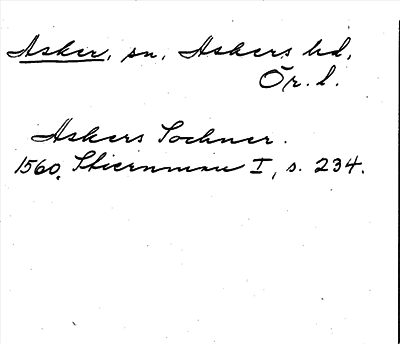 Asker, sn, Askers hd,
Ör. l.
Askers Sochner.
1560. Stiernman I, s. 234.